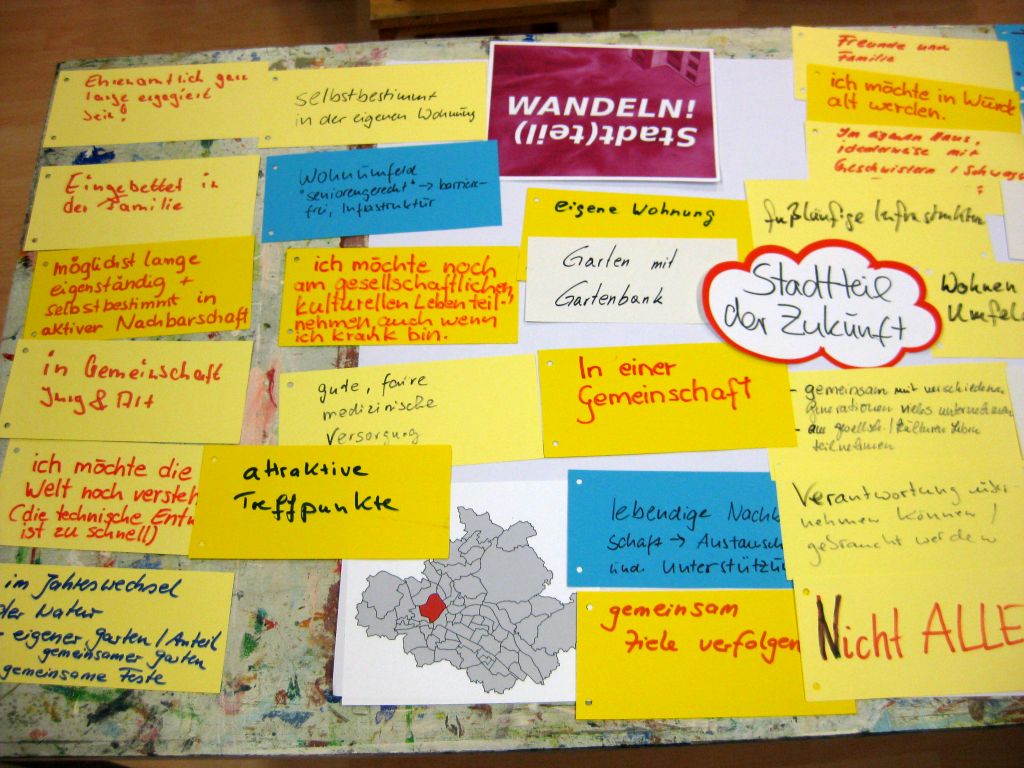 Ehrenamtlich gern
lange
sein!
Eingebettet in
der Familie
möglichst lange
eigenständig +
selbstbestimmt in
aktiver Nachbarschaft
in Gemeinschaft
Jung & Alt
ich möchte die
Welt noch versteh
(die technische Entw
ist zu schnell)
im Jahreswechsel
der Natur
- eigener Garten / Anteil
gemeinsamer Garten
gemeinsame Feste
selbstbestimmt
in der eigenen Wohnung
Wohnumfeld
"seniorengerecht" → barriere-
frei, Infrastruktur
ich möchte noch
am gesellschaftlichen,
kulturellen Leben teil-
nehmen, auch wenn
ich krank bin.
gute, faire
medizinische
Versorgung
attraktive
Treffpunkte
WANDELN!
Stadt(teil)
eigene Wohnung
Garten mit
Gartenbank
In einer
Gemeinschaft
lebendige Nachb
schaft → Austausch
und Unterstützu
gemeinsam
Ziele verfolgen
Freunde und
Familie
ich möchte in Würde
alt werden.
Im eigenen Haus,
idealerweise mit
Geschwistern / Schwag
fußläufige Infrastruktur
Stadtteil
der Zukunft
Wohnen
Umfeld
- gemeinsam mit verschiedenen
Generationen vieles unternehmen
- am gesellsch. / kulturen Leben
teilnehmen
Verantwortung über-
nehmen können /
gebraucht werden
Nicht ALLE